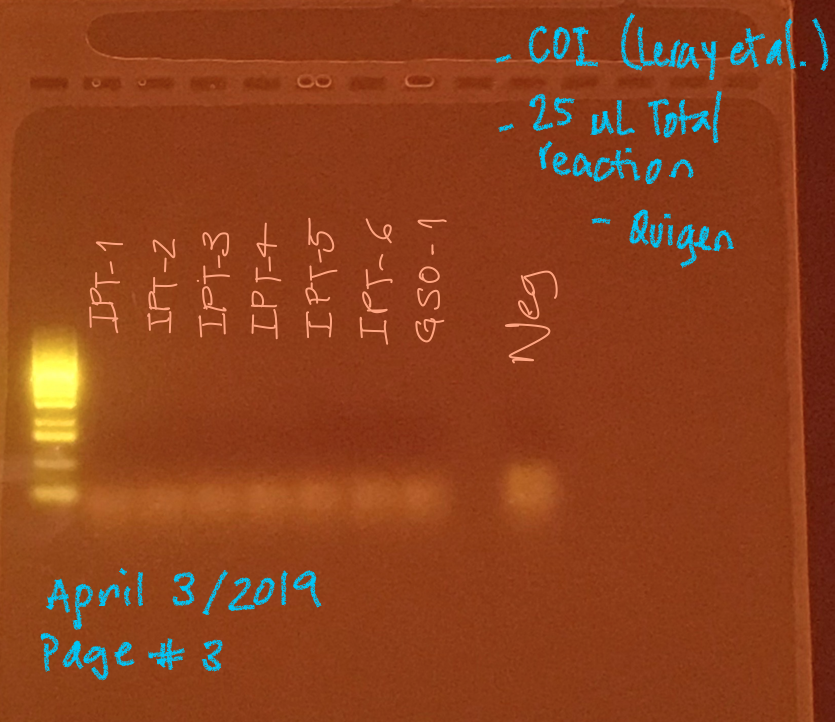 - COI (Leray et al.)
- 25 uL Total
reaction
- Quigen
IPT-1
IPT-2
IPT-3
IPT-4
IPT-5
IPT-6
GSO-1
Neg
April 3/2019
Page # 3